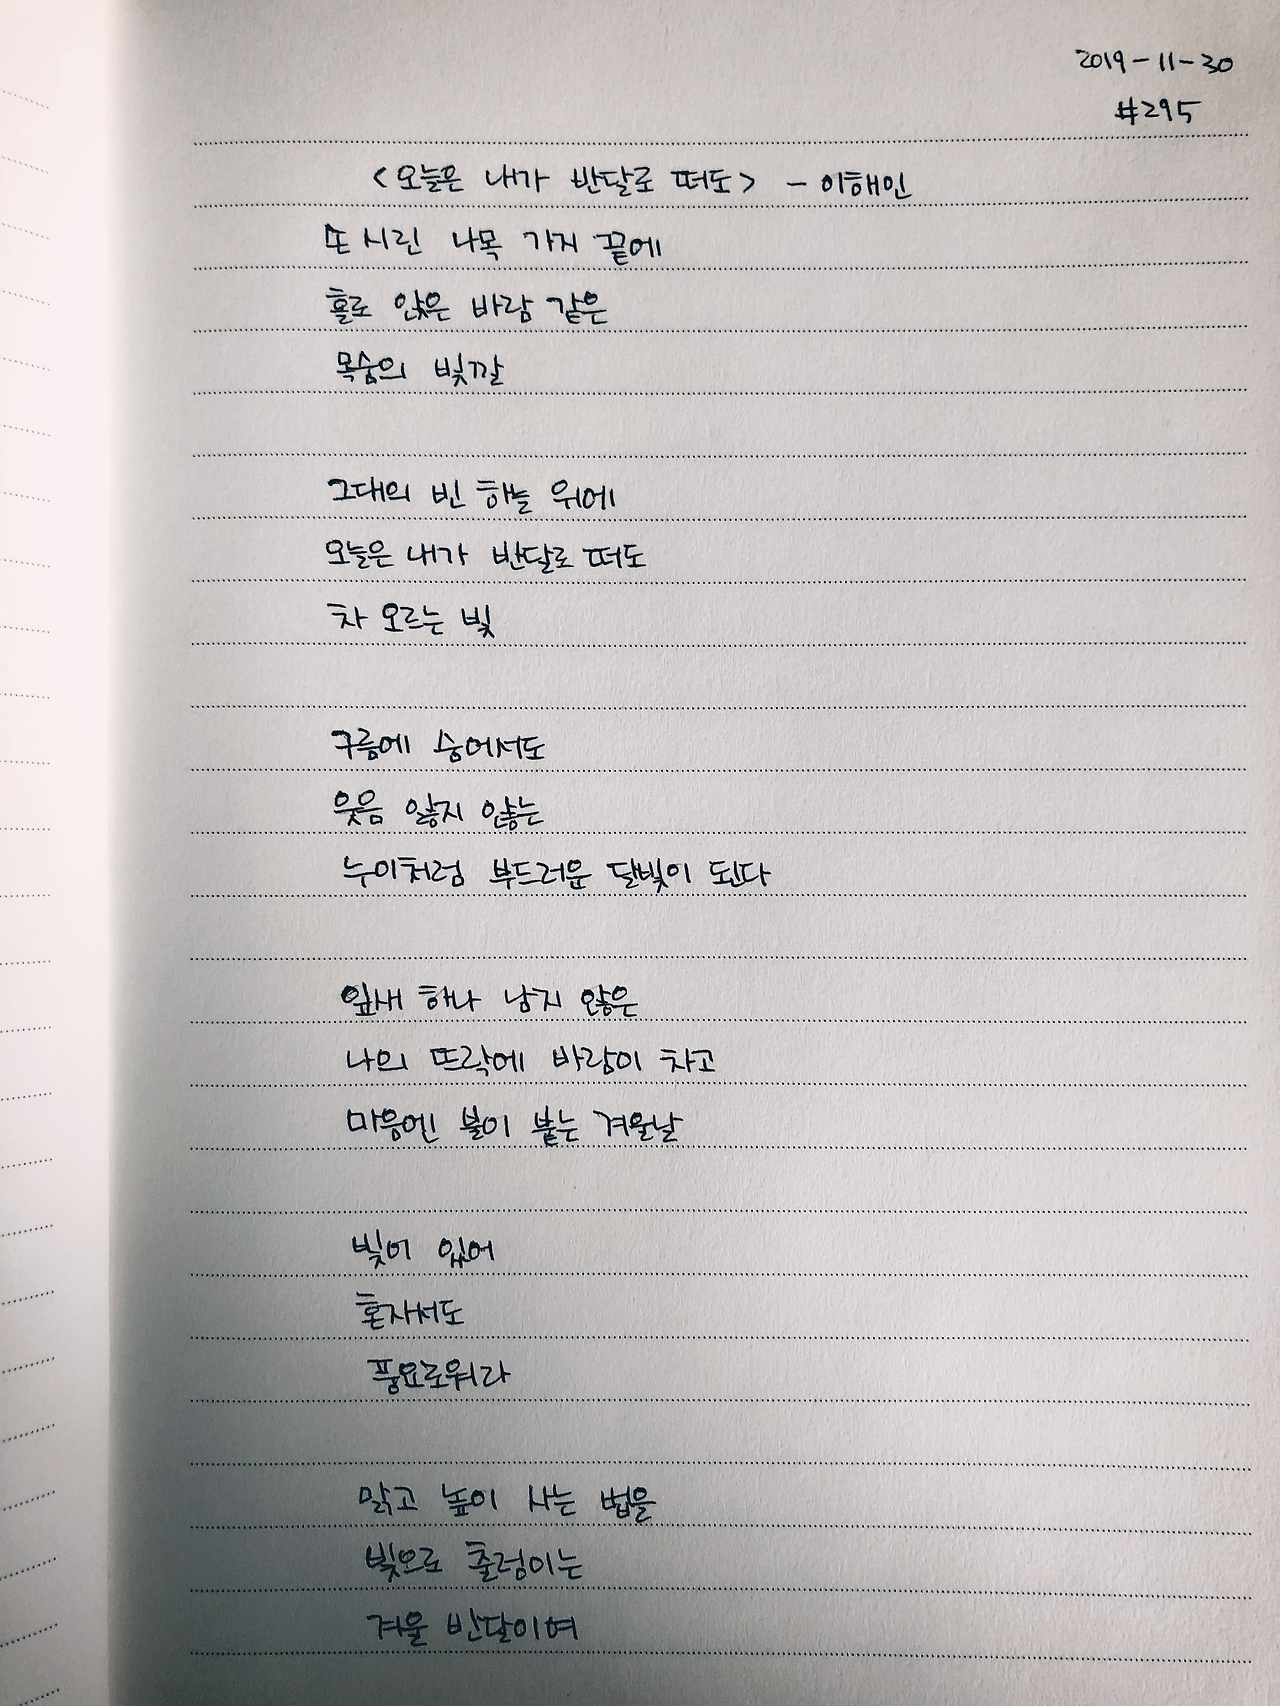 2019-11-30
#295
<오늘은 내가 반달로 떠도> - 이해인
또 시린 나목 가지 끝에
홀로 앉은 바람 같은
목숨의 빛깔
그대의 빈 하늘 위에
오늘은 내가 반달로 떠도
차 오르는 빛
구름에 숨어서도
웃음 잃지 않는
누이처럼 부드러운 달빛이 된다
잎새 하나 남지 않은
나의 뜨락에 바람이 차고
마음엔 불이 붙는 겨울날
빛이 있어
혼자서도
풍요로워라
맑고 높이 사는 법을
빛으로 출렁이는
겨울 반달이여